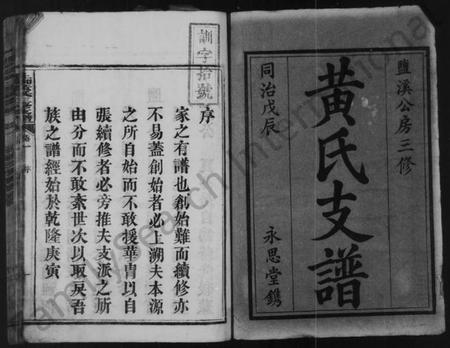 鹽溪公房三修
黃氏支譜
同治戊辰
永思堂鐫
訓字拾號
序
家之有譜也創始難而續修亦
不易蓋創始者必上溯夫本源
之所自始而不敢援華冑以自
張續修者必旁推夫支派之所
由分而不敢紊世次以取戾吾
族之譜經始於乾隆庚寅
FamilySearch International